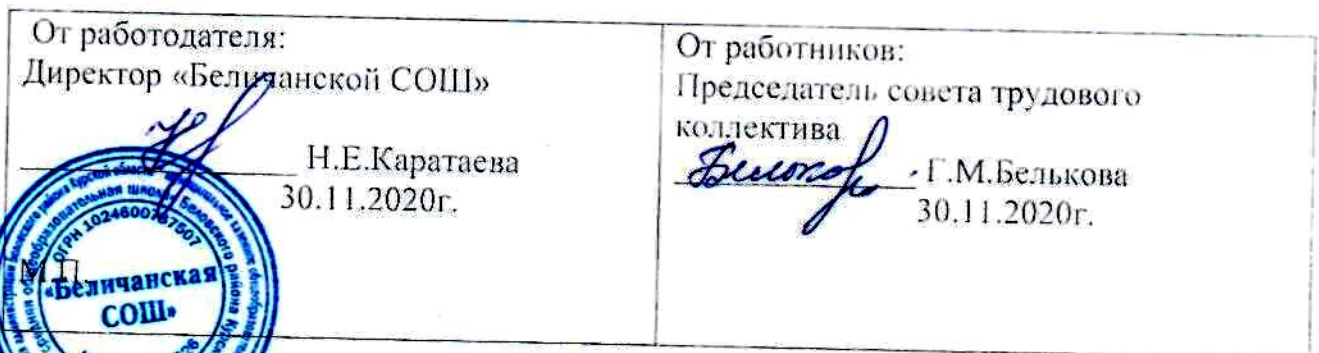 От работодателя:
Директор «Беличанской СОШ»
Н.Е.Каратаева
30.11.2020г.
М.П.
«Беличанская
СОШ»
От работников:
Председатель совета трудового
коллектива
Г.М.Белькова
30.11.2020г.